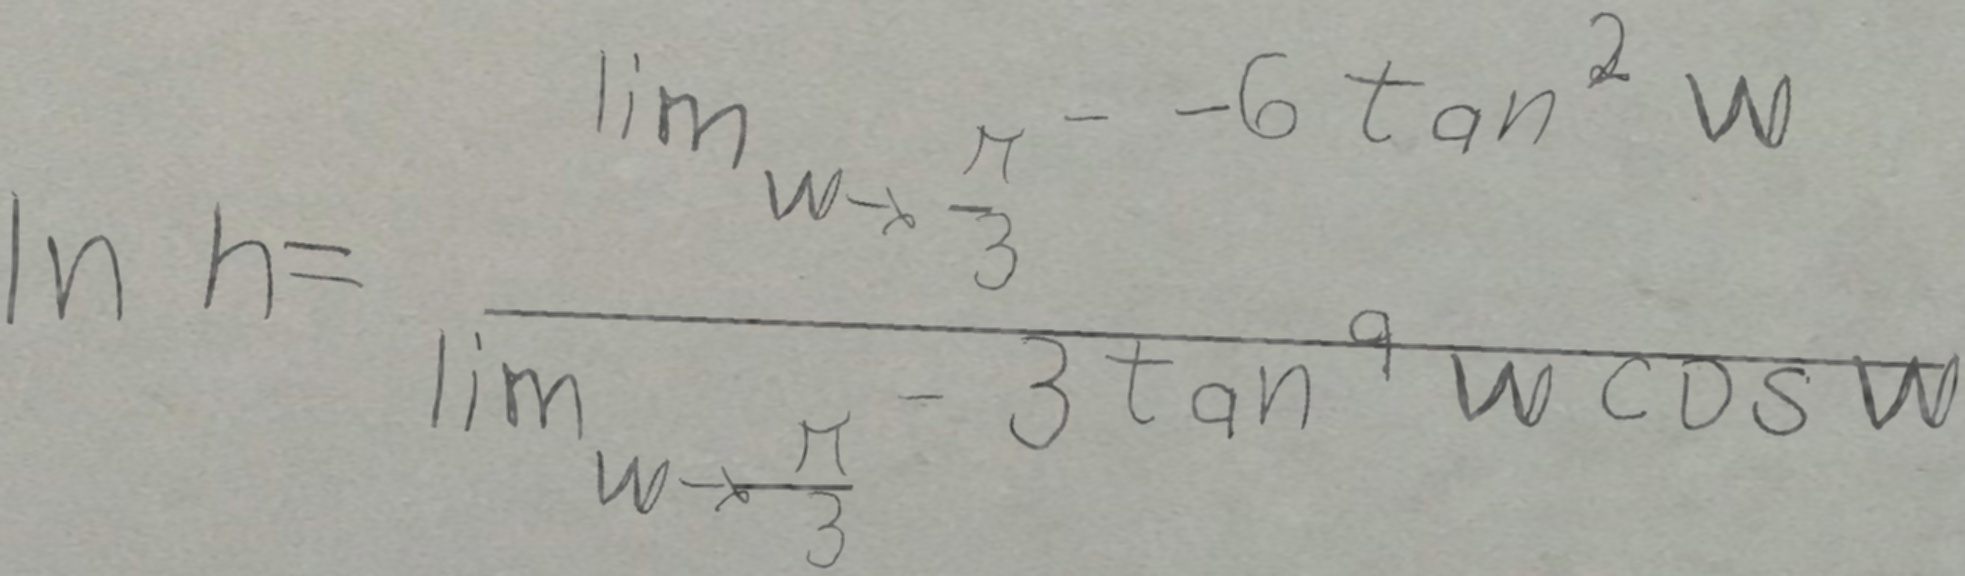 \ln h = \frac{\lim_{w \to \frac{\pi}{3}^-} -6 \tan^2 w}{\lim_{w \to \frac{\pi}{3}^-} 3 \tan^9 w \cos w}